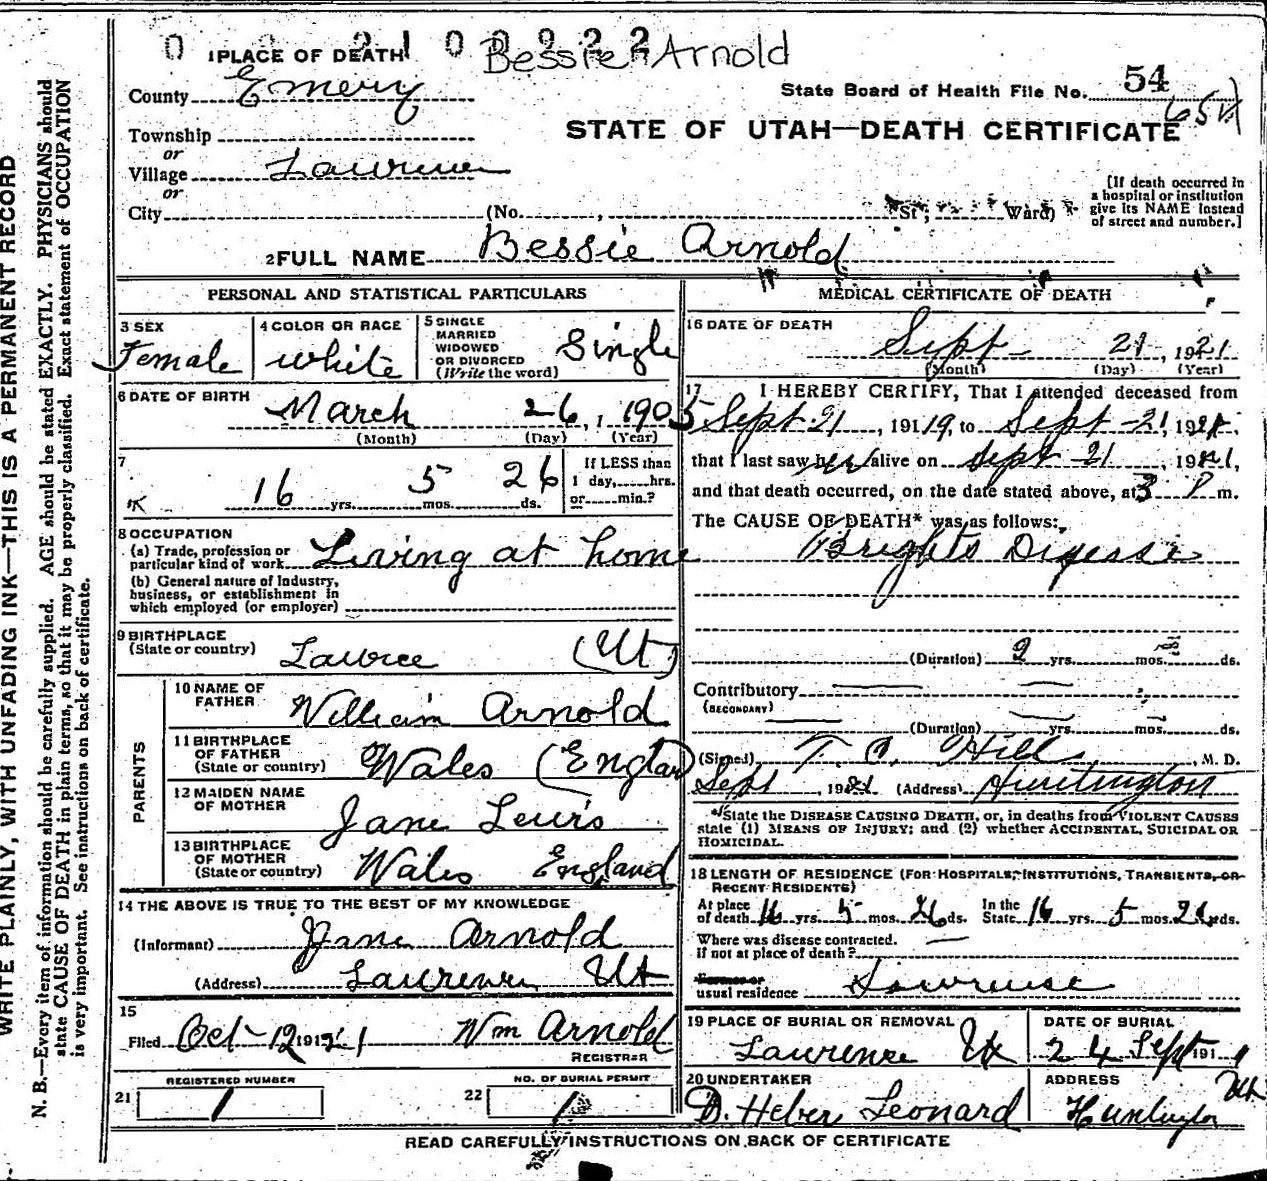 2100922
Bessie Arnold
1 PLACE OF DEATH
County Emery
State Board of Health File No. 54
65
Township
or
STATE OF UTAH—DEATH CERTIFICATE
Village Lawrence
or
City (No. , St.; Ward)
[If death occurred in
a hospital or institution
give its NAME instead
of street and number.]
2 FULL NAME Bessie Arnold
PERSONAL AND STATISTICAL PARTICULARS
3 SEX
Female
4 COLOR OR RACE
white
5 SINGLE
MARRIED
WIDOWED
OR DIVORCED
(Write the word)
Single
6 DATE OF BIRTH
March 26, 1905
(Month) (Day) (Year)
7
16 yrs. 5 mos. 26 ds.
If LESS than
1 day,......hrs.
or......min.?
8 OCCUPATION
(a) Trade, profession or
particular kind of work Living at home
(b) General nature of Industry,
business, or establishment in
which employed (or employer)
9 BIRTHPLACE
(State or country) Lawrce (Ut)
PARENTS
10 NAME OF
FATHER William Arnold
11 BIRTHPLACE
OF FATHER
(State or country) Wales (Englan
12 MAIDEN NAME
OF MOTHER Jane Lewis
13 BIRTHPLACE
OF MOTHER
(State or country) Wales England
14 THE ABOVE IS TRUE TO THE BEST OF MY KNOWLEDGE
(Informant) Jane Arnold
(Address) Lawrence Ut
15
Filed Oct-12 1921 Wm Arnold
REGISTRAR
MEDICAL CERTIFICATE OF DEATH
16 DATE OF DEATH
Sept 21, 1921
(Month) (Day) (Year)
17 I HEREBY CERTIFY, That I attended deceased from
Sept 21, 1919, to Sept-21, 1921,
that I last saw her alive on Sept 21, 1921,
and that death occurred, on the date stated above, at 3 P m.
The CAUSE OF DEATH* was as follows:
Brights Disease
(Duration) 2 yrs. mos. ds.
Contributory
(SECONDARY)
(Duration) yrs. mos. ds.
(Signed) T. C. Hill, M. D.
Sept, 1921 (Address) Huntington
*State the DISEASE CAUSING DEATH, or, in deaths from VIOLENT CAUSES
state (1) MEANS OF INJURY; and (2) whether ACCIDENTAL, SUICIDAL OR
HOMICIDAL.
18 LENGTH OF RESIDENCE (FOR HOSPITALS, INSTITUTIONS, TRANSIENTS, OR
RECENT RESIDENTS)
At place
of death 16 yrs. 5 mos. 26 ds. In the
State 16 yrs. 5 mos. 26 ds.
Where was disease contracted.
If not at place of death?
Former or
usual residence Lawrence
19 PLACE OF BURIAL OR REMOVAL
Lawrence Ut
DATE OF BURIAL
24 Sept 191 1
20 UNDERTAKER
D. Heber Leonard
ADDRESS
Huntington Utah
REGISTERED NUMBER
21 1
NO. OF BURIAL PERMIT
22 1
READ CAREFULLY INSTRUCTIONS ON BACK OF CERTIFICATE
WRITE PLAINLY, WITH UNFADING INK—THIS IS A PERMANENT RECORD
N. B.—Every item of information should be carefully supplied. AGE should be stated EXACTLY. PHYSICIANS should
state CAUSE OF DEATH in plain terms, so that it may be properly classified. Exact statement of OCCUPATION
is very important. See instructions on back of certificate.